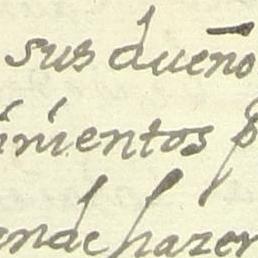 sus dueño
imientos p
ende hazer